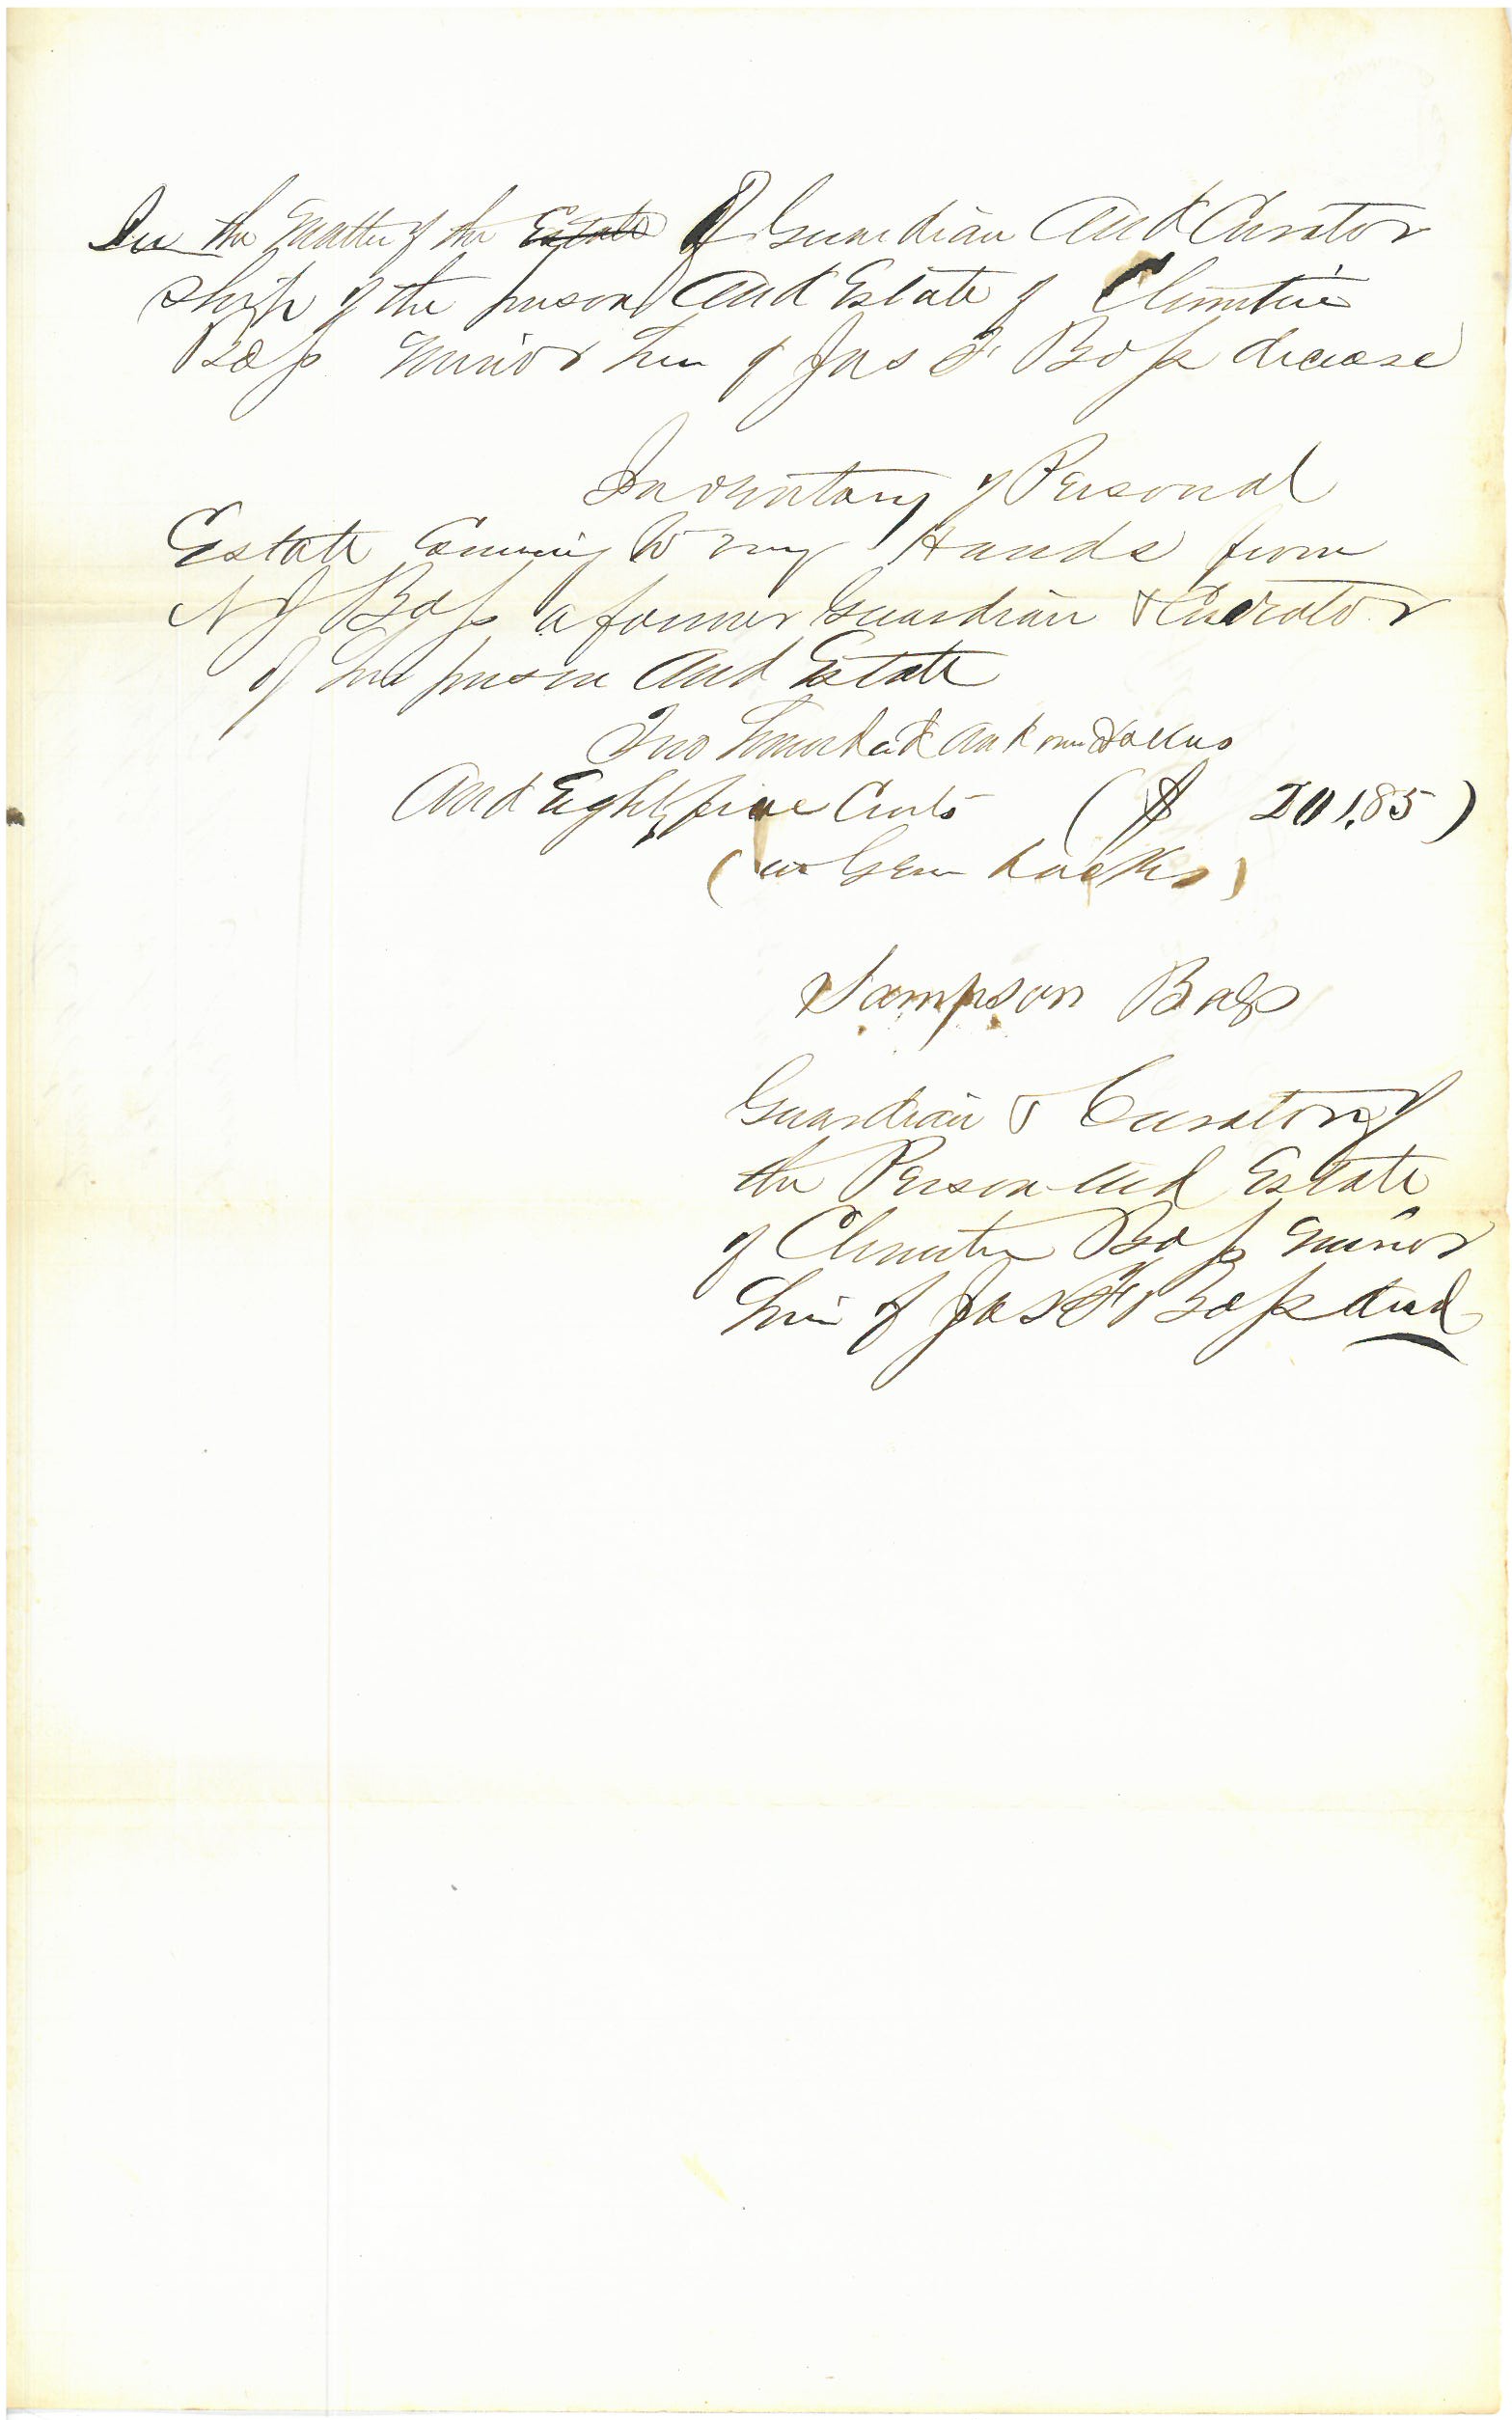 In the Matter of the Estate Of Guardian And Curator
Ship of the person And Estate of Clementine
Bass minor heir of Jas F Bass decease
Inventory of Personal
Estate Coming to my Hands from
N J Bass a former Guardian & Curator
of his person And Estate
Two hundred and one Dollars
And Eighty five Cents ( $ 201.85 )
( in Green backs )
Sampson Bass
Guardian & Curator of
the Person and Estate
of Clementine Bass minor
heir of Jas F Bass decd